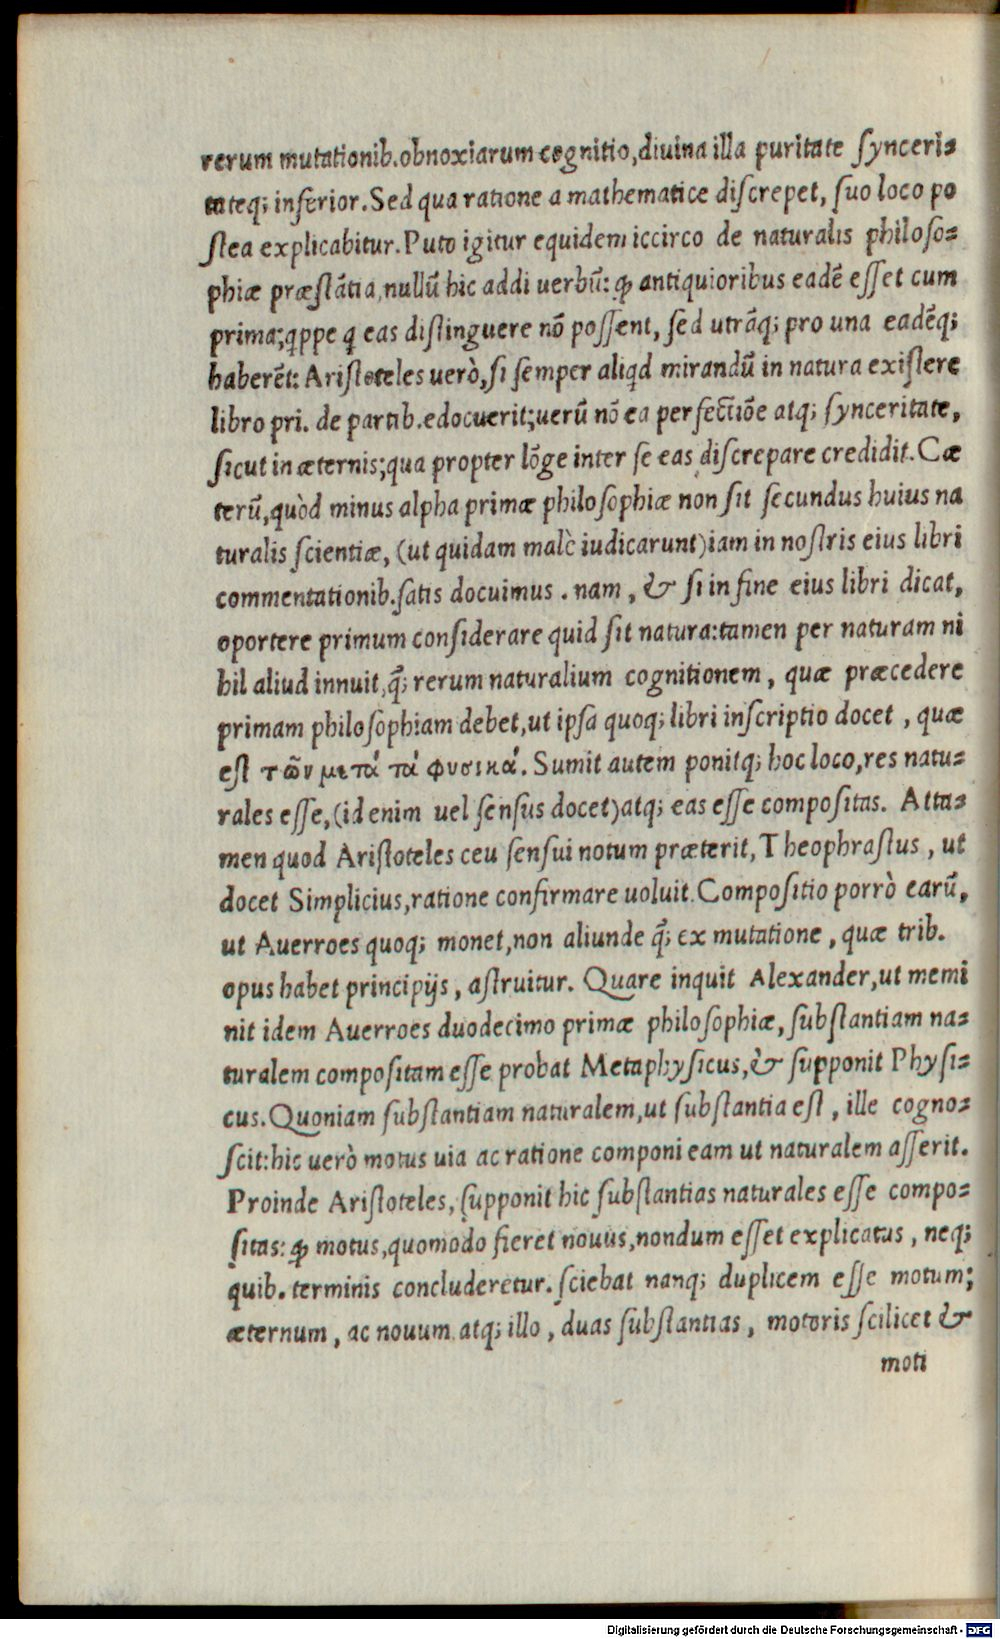 rerum mutationib.obnoxiarum cognitio,diuina illa puritate ſynceri⸗
tateq; inferior. Sed qua ratione a mathematice diſcrepet, ſuo loco po
ſtea explicabitur. Puto igitur equidem iccirco de naturalis philoſo⸗
phiæ præſtãtia,nullũ hic addi uerbũ: ꝙ antiquioribus eadẽ eſſet cum
prima;qppe q eas diſtinguere nõ poſſent, ſed utrãq; pro una eadẽq;
haberẽt: Ariſtoteles uerò,ſi ſemper aliqd mirandũ in natura exiſtere
libro pri. de partib.edocuerit;uerũ nõ ea perfectiõe atq; ſynceritate,
ſicut in æternis;qua propter lõge inter ſe eas diſcrepare credidit. Cæ
terũ,quòd minus alpha primæ philoſophiæ non ſit ſecundus huius na
turalis ſcientiæ, (ut quidam malè iudicarunt)iam in noſtris eius libri
commentationib.ſatis docuimus . nam , & ſi in fine eius libri dicat,
oportere primum conſiderare quid ſit natura:tamen per naturam ni
hil aliud innuit,q̃; rerum naturalium cognitionem , quæ præcedere
primam philoſophiam debet,ut ipſa quoq; libri inſcriptio docet , quæ
eſt τῶν μετὰ τὰ φυσικά. Sumit autem ponitq; hoc loco,res natu⸗
rales eſſe,(id enim uel ſenſus docet)atq; eas eſſe compoſitas. Atta⸗
men quod Ariſtoteles ceu ſenſui notum præterit,Theophraſtus , ut
docet Simplicius,ratione confirmare uoluit. Compoſitio porrò earũ,
ut Auerroes quoq; monet,non aliunde q̃; ex mutatione , quæ trib.
opus habet principijs , aſtruitur. Quare inquit Alexander,ut memi
nit idem Auerroes duodecimo primæ philoſophiæ, ſubſtantiam na⸗
turalem compoſitam eſſe probat Metaphyſicus,& ſupponit Phyſi⸗
cus. Quoniam ſubſtantiam naturalem,ut ſubſtantia eſt , ille cogno⸗
ſcit:hic uerò motus uia ac ratione componi eam ut naturalem aſſerit.
Proinde Ariſtoteles, ſupponit hic ſubſtantias naturales eſſe compo⸗
ſitas: ꝙ motus,quomodo fieret nouus,nondum eſſet explicatus , neq;
quib. terminis concluderetur. ſciebat nanq; duplicem eſſe motum;
æternum , ac nouum atq; illo , duas ſubſtantias , motoris ſcilicet &
moti
Digitalisierung gefördert durch die Deutsche Forschungsgemeinschaft - DFG